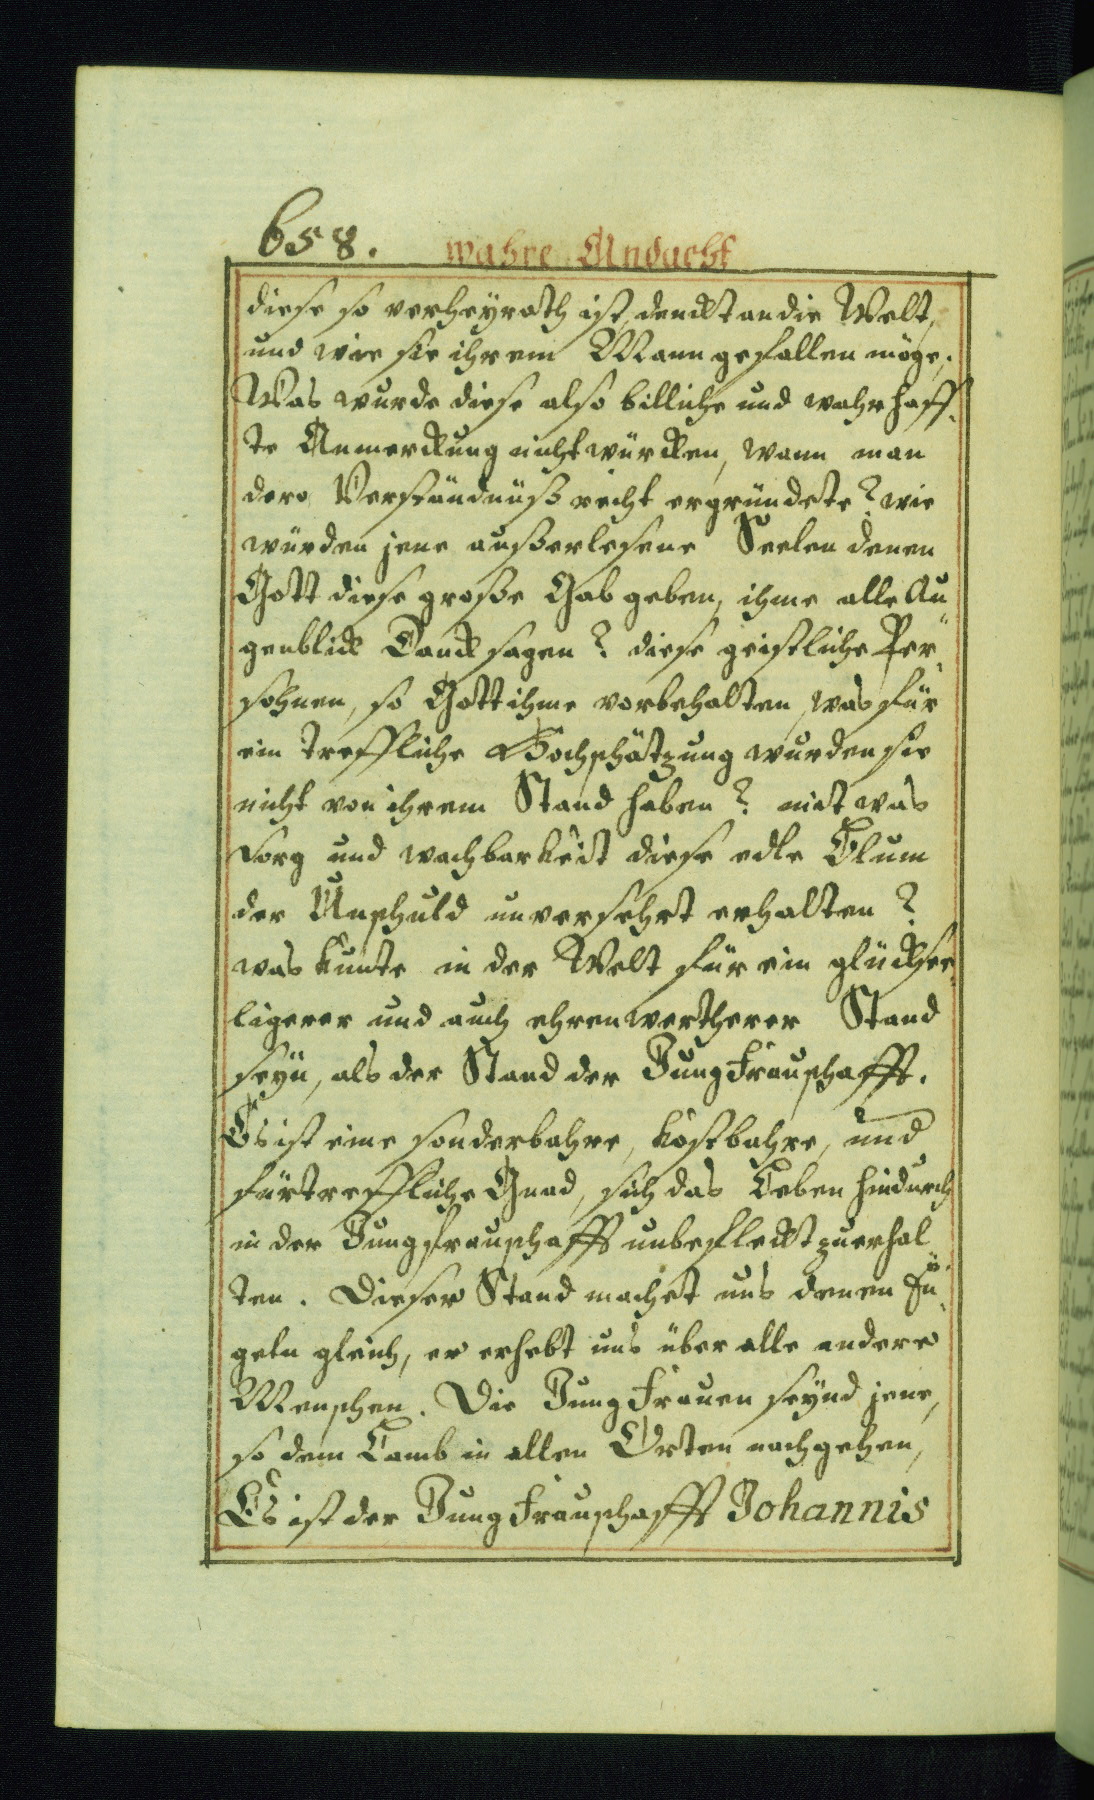 658. wahre Andacht
diese so verheyrath ist, denckt an die Welt,
und wie sie ihrem Mann gefallen möge.
Was wurde diese also billiche und wahrhaff-
te Anmerckung nicht würcken, wann man
dero Verständnüß recht ergründete? wie
würden jene außerlesene Seelen denen
Gott diese große Gab geben, ihme alle Au-
genblick Danck sagen? diese geistliche Per-
sohnen, so Gott ihme vorbehalten, was für
ein treffliche Hochschätzung wurden sie
nicht von ihrem Stand haben? mit was
sorg und wachbarkeit diese edle Blum
der Unschuld unversehrt erhalten?
was kunte in der Welt für ein glücksee-
ligerer und auch ehrenwertherer Stand
seyn, als der Stand der Jungfrauschafft.
Es ist eine sonderbahre, kostbahre, und
fürtreffliche Gnad, sich das Leben hindurch
in der Jungfrauschafft unbefleckt zuerhal-
ten. Dieser Stand machet uns denen En-
geln gleich, er erhebt uns über alle andere
Menschen. Die Jungfrauen seynd jene,
so dem Lamb in allen Orten nachgehen,
Es ist der Jungfrauschafft Johannis